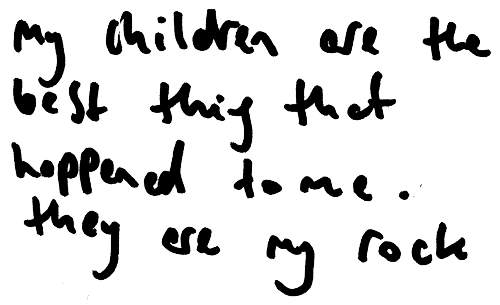 my children are the
best thing that
happened to me.
they are my rock